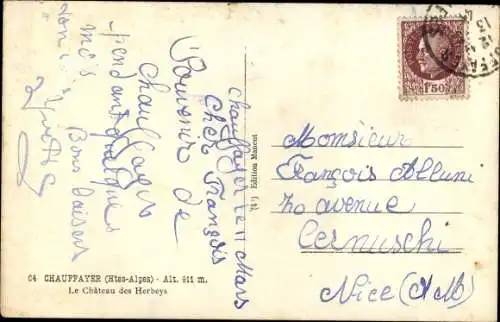 Chauffayer le 11 Mars
Cher François
Souvenir de
Chauffayer
pendant quelques
mois
Bons baisers
Yvette
64 CHAUFFAYER (Htes-Alpes) - Alt. 911 m.
Le Château des Herbeys
Edition Manent
1F50
Monsieur
François Allune
20 avenue
Cernuschi
Nice (A M)